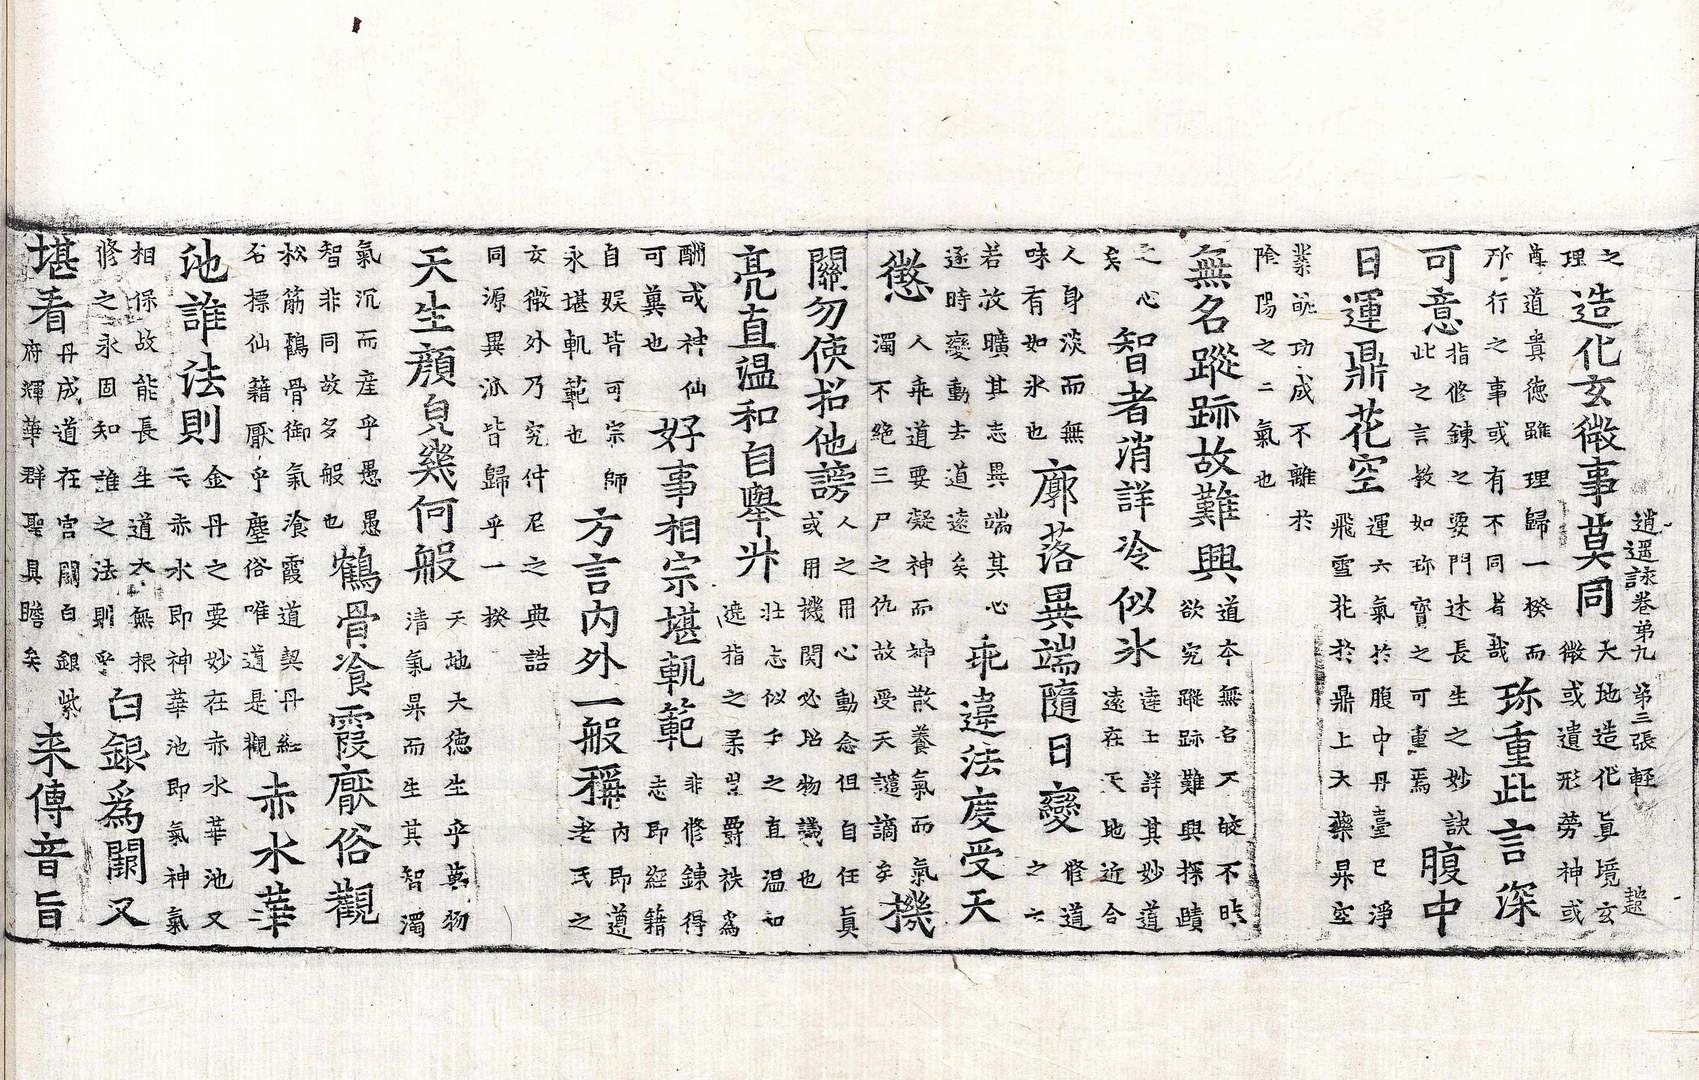 逍遥詠卷第九 第三張 輕
之
理
造化玄微事莫同
天地造化真境玄
微或遺形勞神或
尊道貴德雖理歸一揆而
所行之事或有不同者哉
珎重此言深
可意
指修鍊之要門述長生之妙訣
此之言教如珎寶之可重焉
腹中
日運鼎花空
運六氣於腹中丹臺已淨
飛雪花於鼎上大藥杲空
業既功成不離於
陰陽之二氣也
無名蹤跡故難興
道本無名不皎不昧
欲究蹤跡難興探賾
之心
矣
智者消詳冷似氷
達士詳其妙道
遠在天地近合
人身淡而無
味有如氷也
廓落異端隨日變
修道
之士
若放曠其志異端其心
逐時變動去道遠矣
乖違法度受天
懲
人乖道要凝神而神散養氣而氣
濁不絶三尸之仇故受天譴謫矣
機
關勿使招他謗
人之用心動念但自任真
或用機関必招物議也
亮直温和自舉升
壮志似乎之直温和
逸指之柔豈爵祑爲
酬或神仙
可冀也
好事相宗堪軌範
非修鍊得
志即經籍
自娱皆可宗師
永堪軌範也
方言內外一般稱
內即遵
老氏之
玄微外乃究仲尼之典誥
同源異派皆歸乎一揆
天生顔皃幾何般
天地大德生乎萬物
清氣杲而生其智濁
氣沉而産乎愚愚
智非同故多般也
鶴骨飡霞厭俗觀
松筋鶴骨御氣飡霞道契丹紅
名標仙籍厭乎塵俗唯道是觀
赤水華
池誰法則
金丹之要妙在赤水華池又
云赤水即神華池即氣神氣
相保故能長生道大無根
修之永固知誰之法則乎
白銀爲闕又
堪看
丹成道在宮闕白銀紫
府輝華群聖具瞻矣
来傳音旨